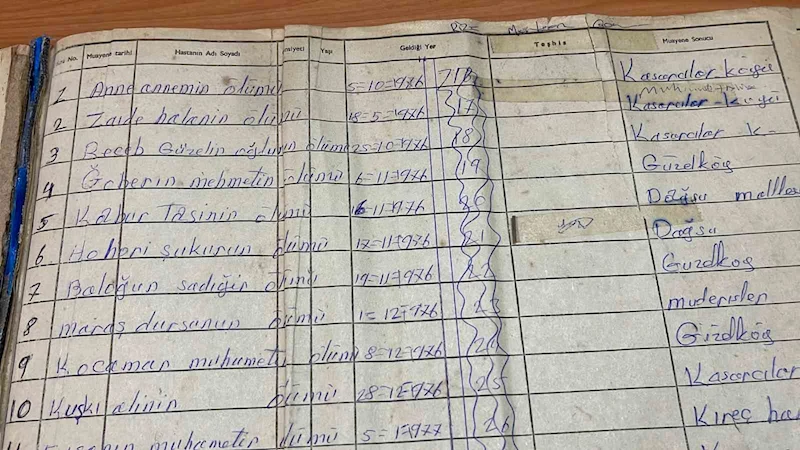 Sıra No. Muayene tarihi Hastanın Adı Soyadı Cinsiyeti Yaşı Geldiği Yer Teşhis Muayene Sonucu
1 Anneannemin ölümü 5=10=1976 Kasarcılar köyü
2 Zaide halanin ölümü 18=5=1976 17 Kasarcılar-köyü
3 Receb Güzelin oğlunun ölümü 25=10=1976 18 Kasarcılar K-
4 mehmetin ölümü 6=11=1976 19 Güzelköy
5 Kabur Taşinin ölümü 16=11=1976 20 Dağsu
6 şukurun ölümü 17=11=1976 21 Dağsu
7 sadığin ölümü 19=11=1976 22 Güzelköy
8 maraş dursunun ölümü 1=12=976 23 muderisler
9 Kocaman muhametin ölümü 8=12=976 24 Güzelköy
10 Kuşki alinin ölümü 28=12=976 25 Kasarcılar
muhametin ölümü 5=1=977 26 Kireç